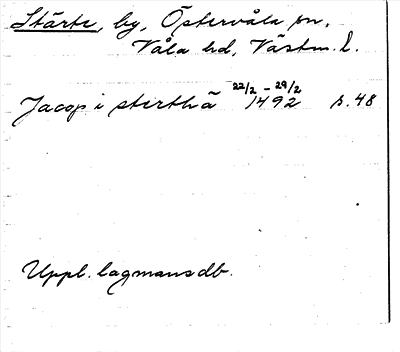 Stärte, by, Östervåla sn,
Våla hd, Västm. l.
22/2 - 29/2
Jacop i sterthā 1492 s. 48
Uppl. lagmansdb.